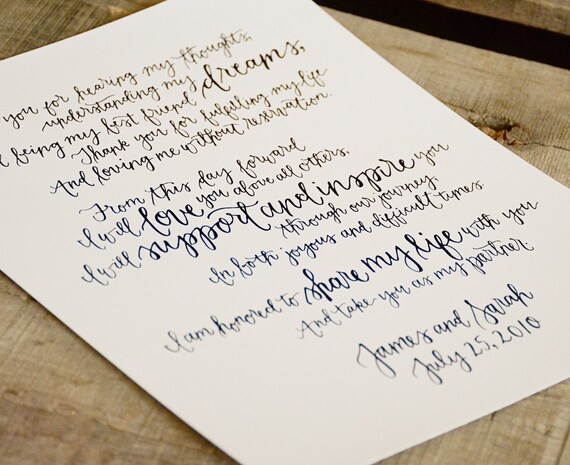 you for hearing my thoughts,
understanding my dreams,
being my best friend
Thank you for fulfilling my life
And loving me without reservation.
From this day forward
I will love you above all others,
I will support and inspire you
through our journey,
In both joyous and difficult times.
I am honored to share my life with you
And take you as my partner
James and Sarah
July 25, 2010